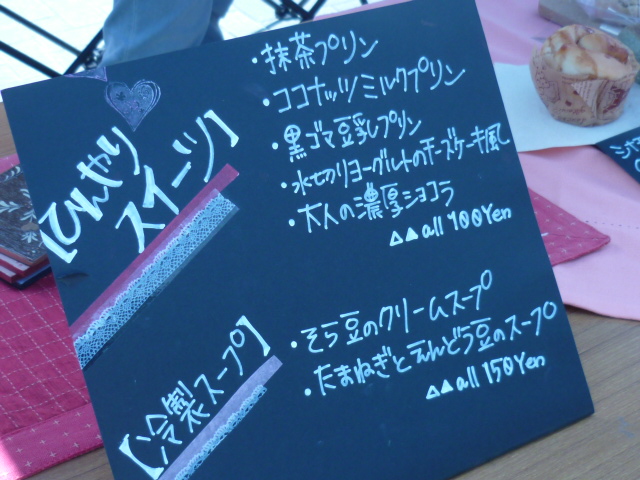 【ひんやり
スイーツ】
・抹茶プリン
・ココナッツミルクプリン
・黒ゴマ豆乳プリン
・水切りヨーグルトのチーズケーキ風
・大人の濃厚ショコラ
△▲all 100Yen
【冷製スープ】
・そら豆のクリームスープ
・たまねぎとえんどう豆のスープ
△▲all 150Yen